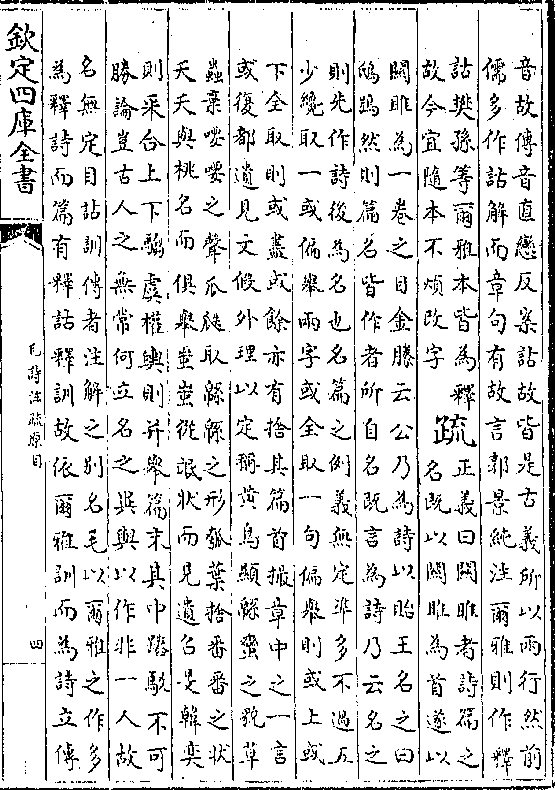 音故傳音直戀反案詁故皆是古義所以兩行然前
儒多作詁解而章句有故言郭景純注爾雅則作釋
詁樊孫等爾雅本皆為釋
故今宜隨本不煩改字
疏
正義曰關雎者詩篇之
名既以關雎為首遂以
關雎為一卷之目金縢云公乃為詩以貽王名之曰
鴟鴞然則篇名皆作者所自名既言為詩乃云名之
則先作詩後為名也名篇之例義無定準多不過五
少纔取一或偏舉兩字或全取一句偏舉則或上或
下全取則或盡或餘亦有捨其篇首撮章中之一言
或復都遺見文假外理以定稱黃鳥顯緜蠻之貌草
蟲棄喓喓之聲瓜瓞取緜緜之形瓠葉捨番番之狀
夭夭與桃名而俱舉蚩蚩從氓狀而見遺召旻韓奕
則采合上下騶虞權輿則并舉篇末其中踳駮不可
勝論豈古人之無常何立名之異與以作非一人故
名無定目詁訓傳者注解之別名毛以爾雅之作多
為釋詩而篇有釋詁釋訓故依爾雅訓而為詩立傳
欽定四庫全書
毛詩注疏原目
四